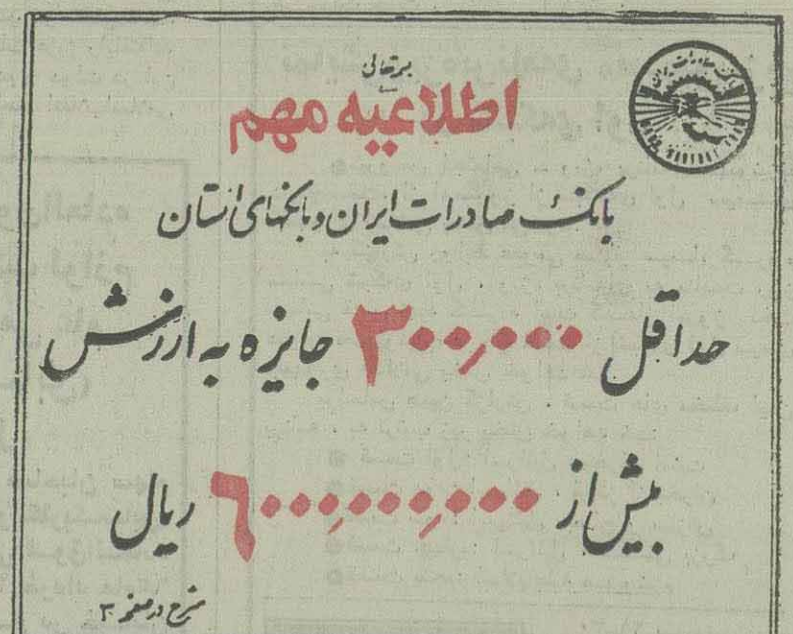 بسمه تعالی
اطلاعیه مهم
بانک صادرات ایران و بانکهای استان
حداقل ۳۰۰٫۰۰۰ جایزه به ارزش
بیش از ۶۰۰٫۰۰۰٫۰۰۰ ریال
شرح در صفحه ۳